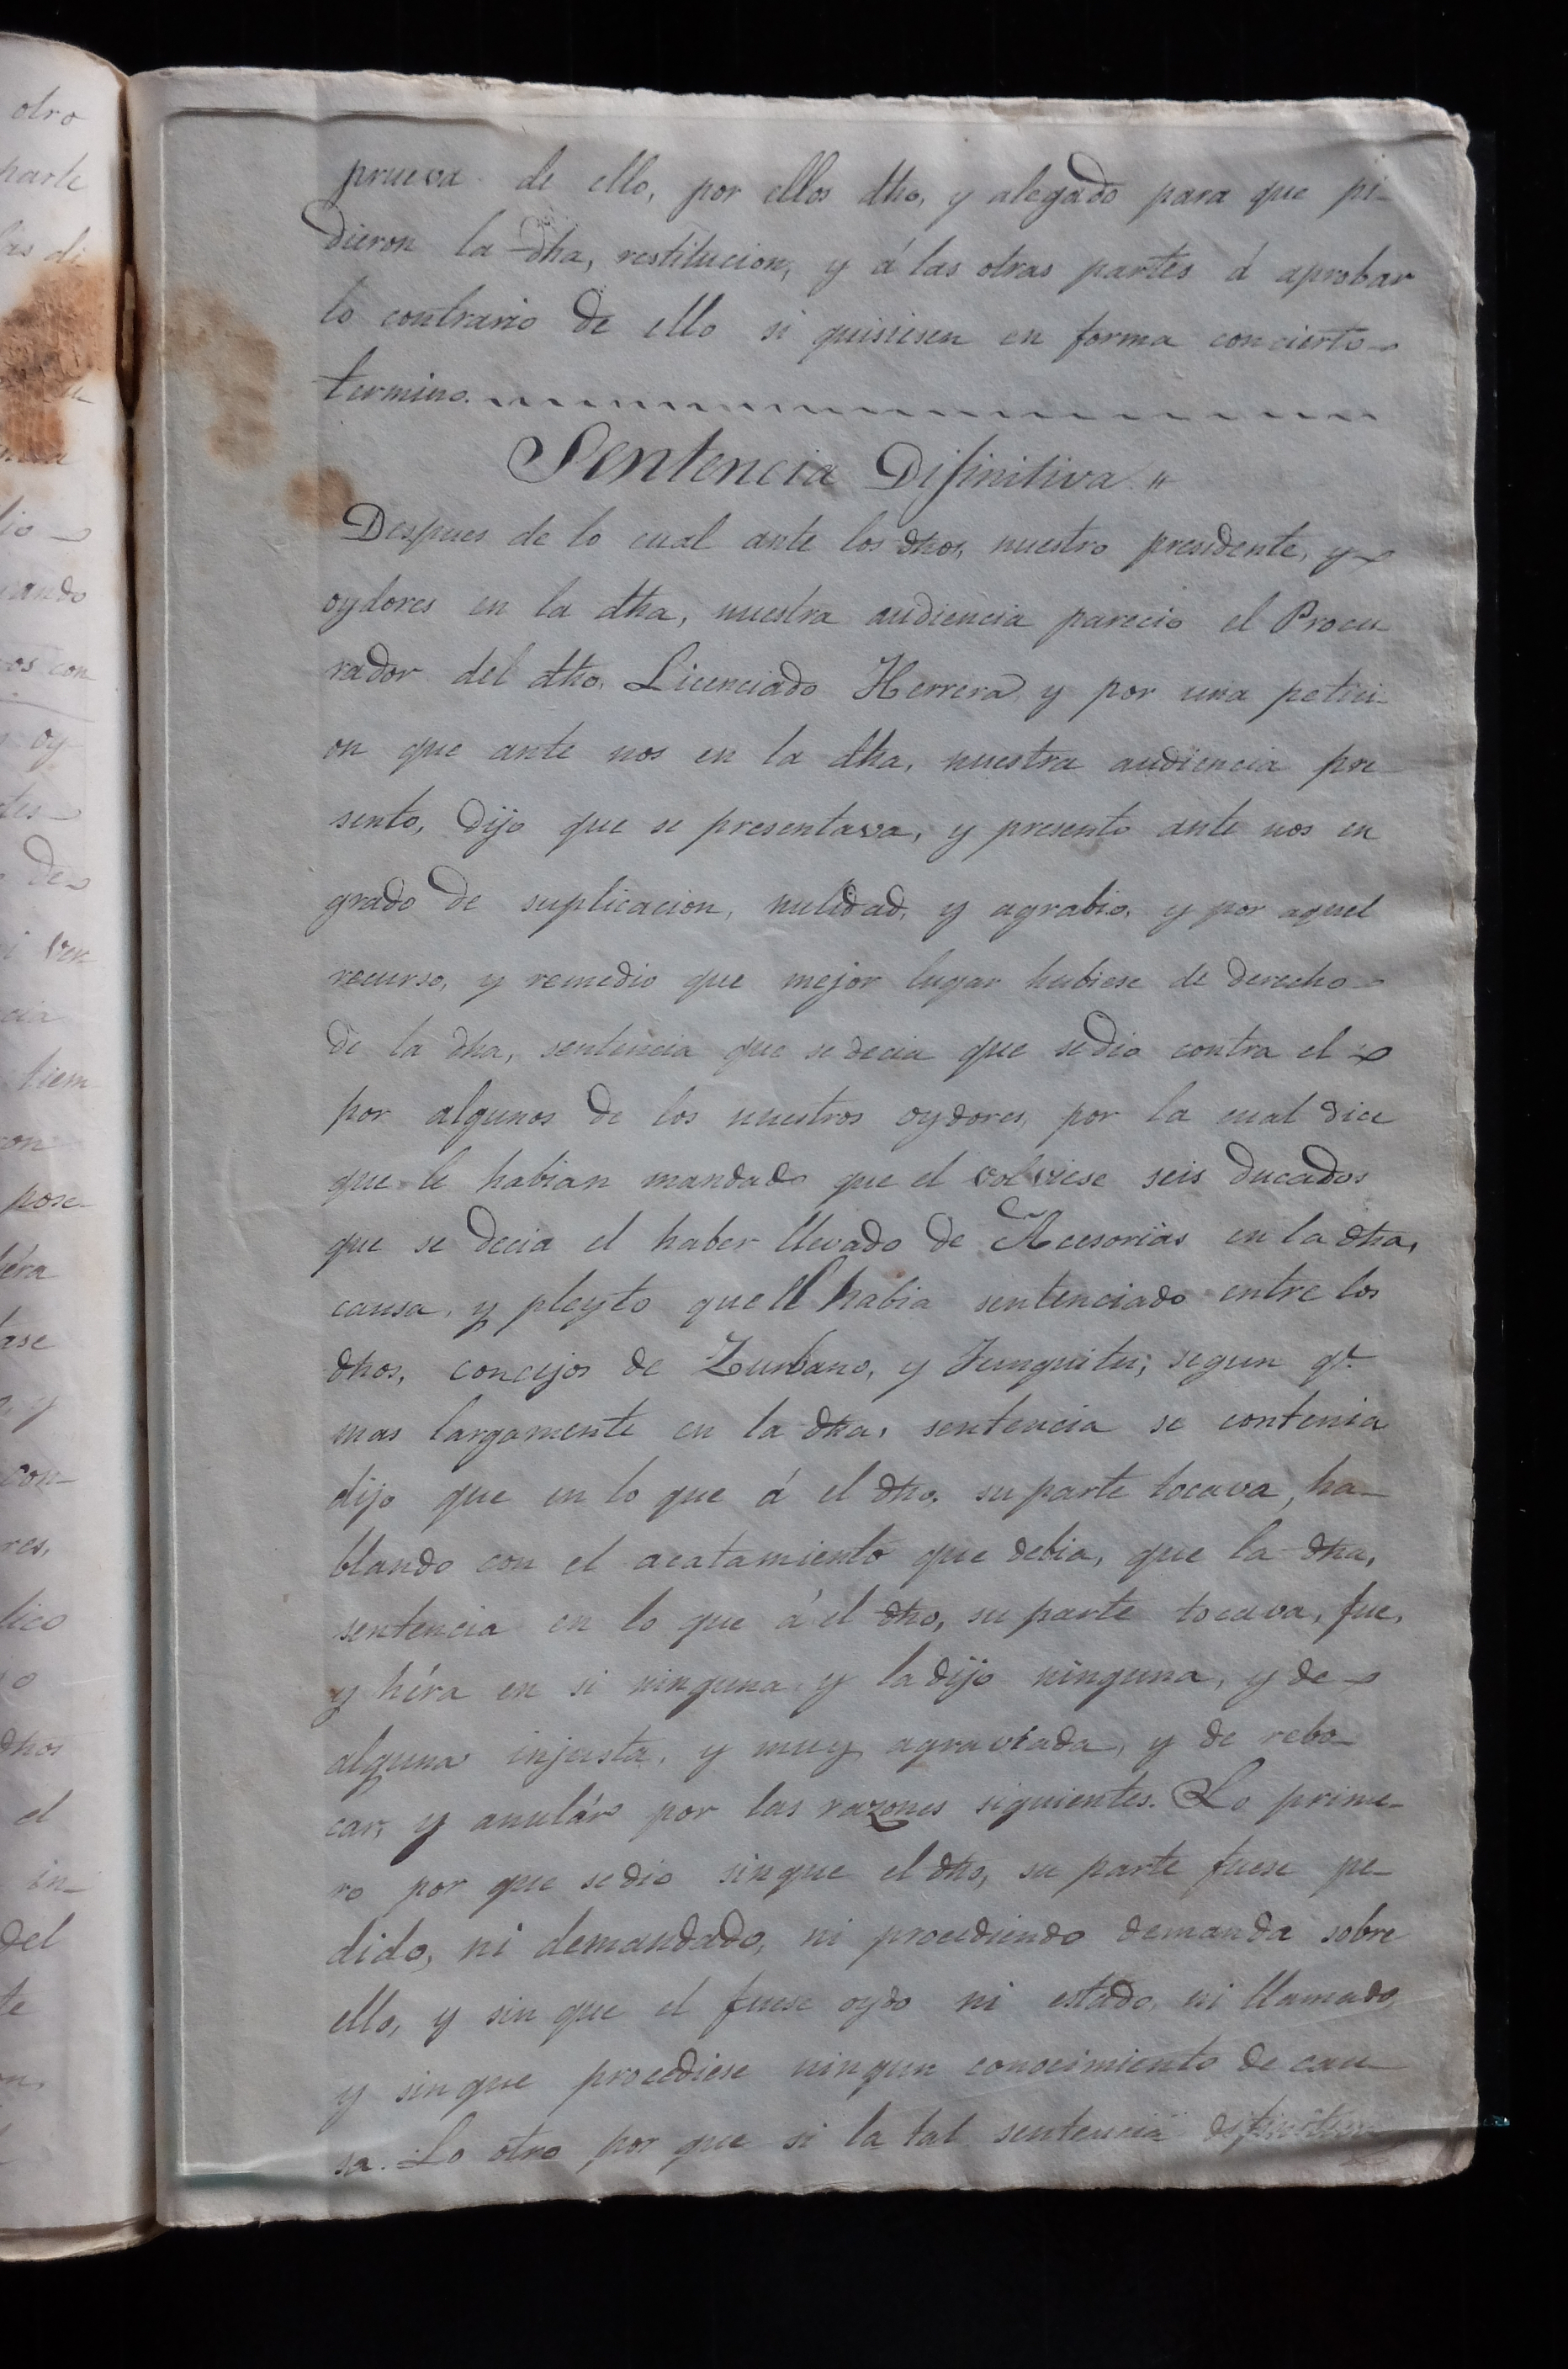 prueva de ello, por ellos dho, y alegado para que pi-
dieron la dha, restitucion, y á las otras partes á aprobar
lo contrario de ello si quisiesen en forma concierto
termino.
Sentencia Difinitiva "
Despues de lo cual ante los dhos, nuestro presidente, y
oydores en la dha, nuestra audiencia parecio el Procu
rador del dho. Licenciado Herrera y por una petici-
on que ante nos en la dha, nuestra audiencia pre
sento, dijo que se presentava, y presento ante nos en
grado de suplicacion, nulidad, y agrabio, y por aquel
recurso, y remedio que mejor lugar hubiese de derecho
de la dha, sentencia que se decia que se dio contra el
por algunos de los nuestros oydores, por la cual dice
que le habian mandado que el volviese seis ducados
que se decia el haber llevado de Acesorias en la dha,
causa, y pleyto que ll habia sentenciado entre los
dhos, concejos de Zurbano, y Junguitu; segun qe.
mas largamente en la dha, sentencia se contenia
dijo que en lo que á el dho. su parte tocava, ha-
blando con el acatamiento que debia, que la dha,
sentencia en lo que á el dho, su parte tocava, fue,
y héra en si ninguna y la dijo ninguna, y de
alguna injusta, y muy agraviada, y de rebo-
car, y anulár por las razones siguientes. Lo prime-
ro por que se dio sin que el dho, su parte fuese pe-
dido, ni demandado, ni procediendo demanda sobre
ello, y sin que el fuese oydo ni estado, ni llamado,
y sin que procediese ningun conocimiento de cau
sa. Lo otro por que si la tal sentencia
otro
parte
di
lio
nando
os con
oy-
tes
de
ni ven
cia
tiem
on
pose-
era
ase
y
con-
res,
lico
o
dhos
el
in-
del
te